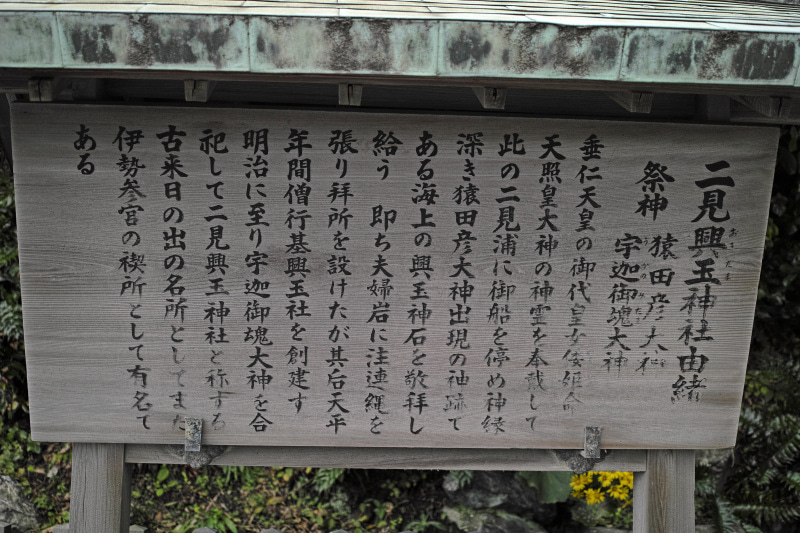 二見興玉神社由緒
祭神 猿田彦大神
宇迦御魂大神
垂仁天皇の御代皇女倭姫命
天照皇大神の神霊を奉戴して
此の二見浦に御船を停め神縁
深き猿田彦大神出現の神跡て
ある海上の興玉神石を敬拝し
給う 即ち夫婦岩に注連縄を
張り拝所を設けたが其后天平
年間僧行基興玉社を創建す
明治に至り宇迦御魂大神を合
祀して二見興玉神社と称する
古来日の出の名所としてまた
伊勢参宮の禊所として有名て
ある